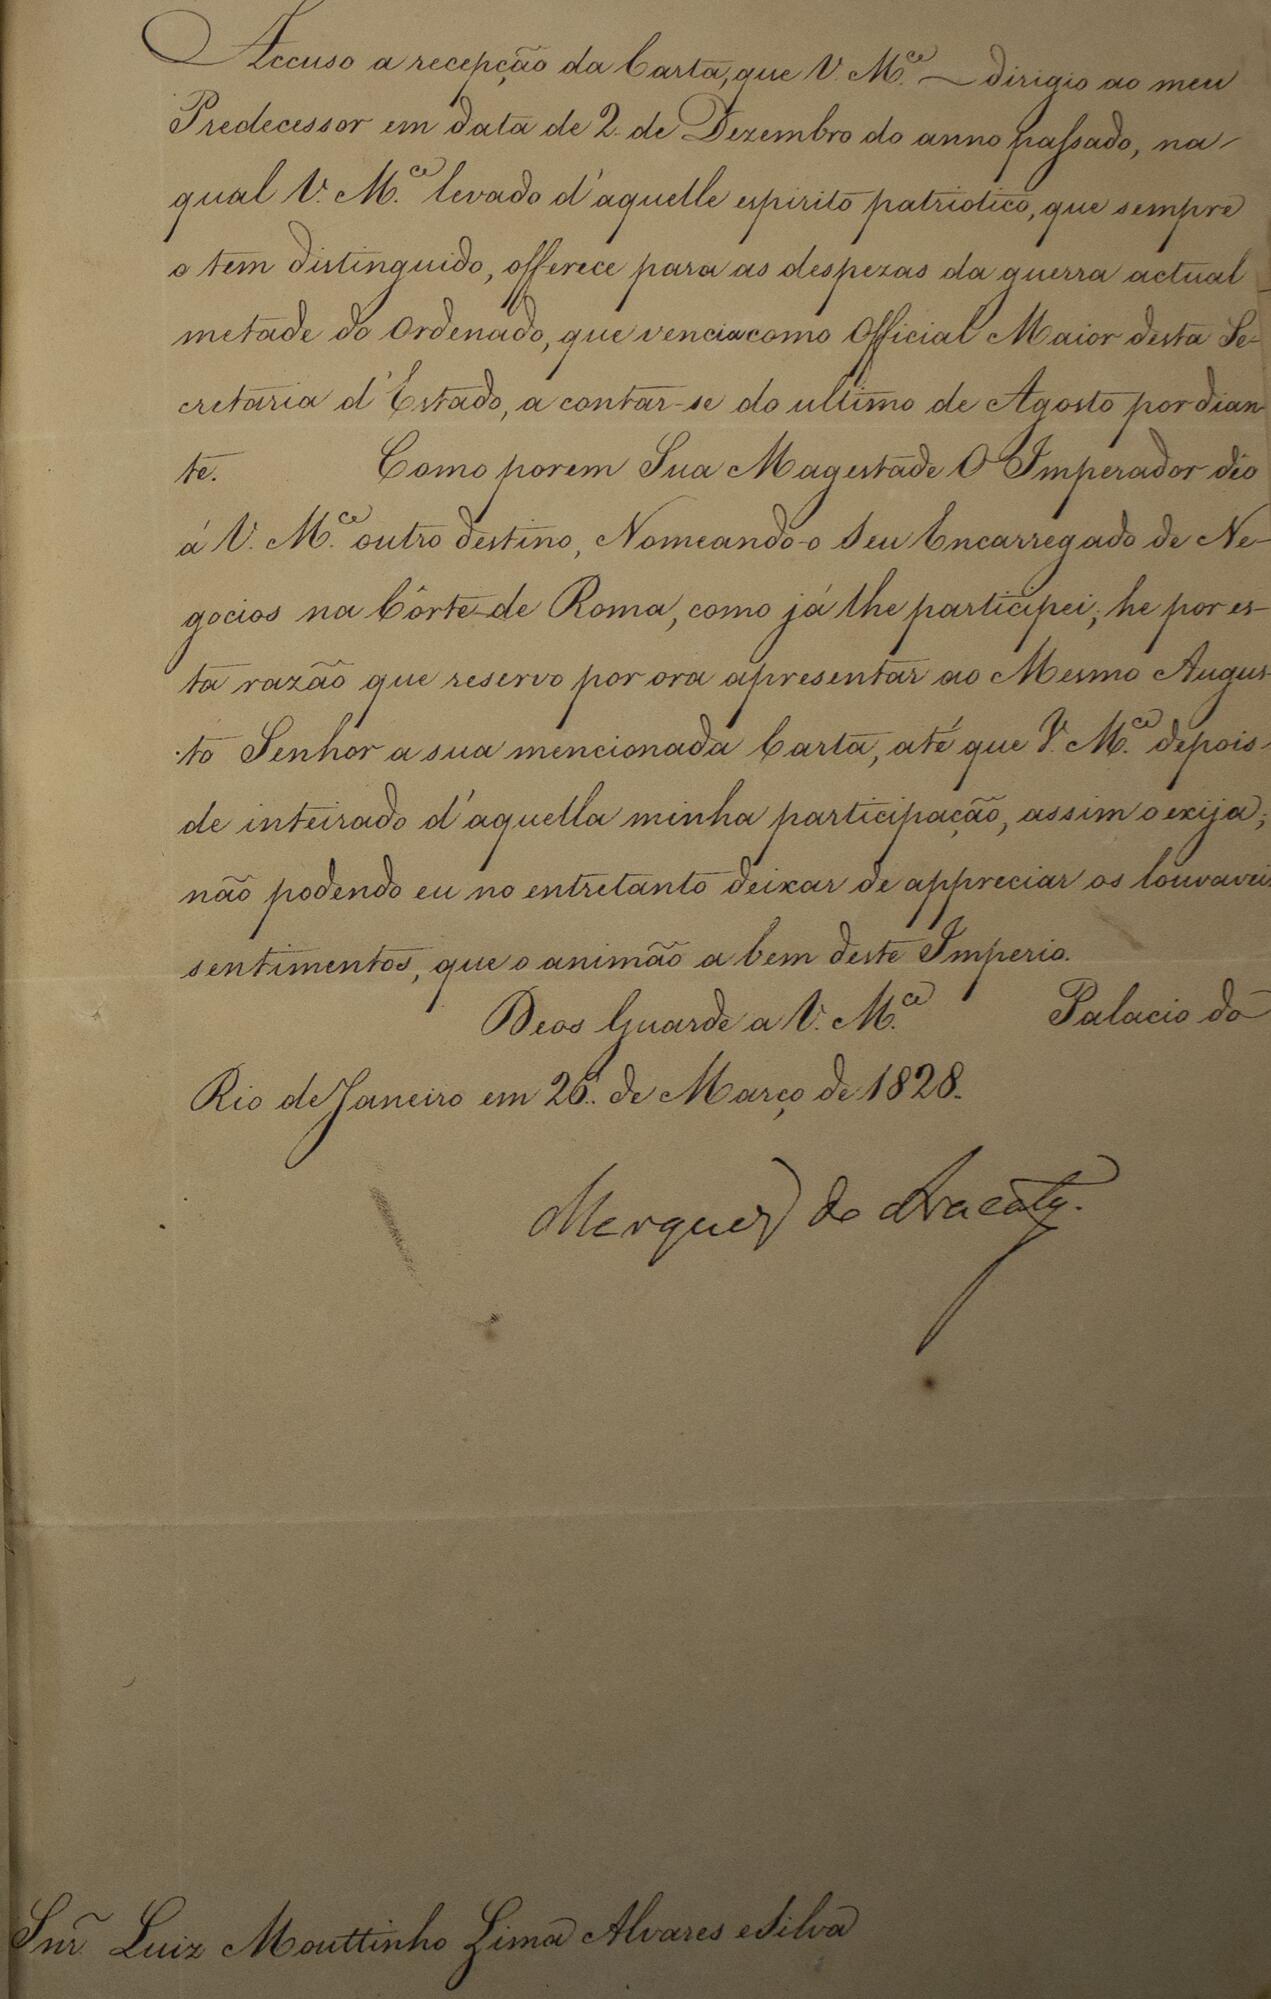 Accuso a recepção da Carta, que V. M.ce dirigio ao meu
Predecessor em data de 2. de Dezembro do anno passado, na
qual V. M.ce levado d'aquelle espirito patriotico, que sempre
o tem distinguido, offerece para as despezas da guerra actual
metade do Ordenado, que vencia como Official Maior desta Se-
cretaria d'Estado, a contar-se do ultimo de Agosto por dian
te. Como porem Sua Magestade O Imperador deo
á V. M.ce outro destino, Nomeando-o Seu Encarregado de Ne-
gocios na Côrte de Roma, como já lhe participei; he por es-
ta razão que reservo por ora apresentar ao Mesmo Augus-
to Senhor a sua mencionada Carta, até que V. M.ce depois
de inteirado d'aquella minha participação, assim o exija;
não podendo eu no entretanto deixar de appreciar os louvaveis
sentimentos, que o animão a bem deste Imperio.
Deos Guarde a V. M.ce Palacio do
Rio de Janeiro em 26. de Março de 1828.
Marquez de Aracaty.
Snr. Luiz Mouttinho Lima Alvares e Silva